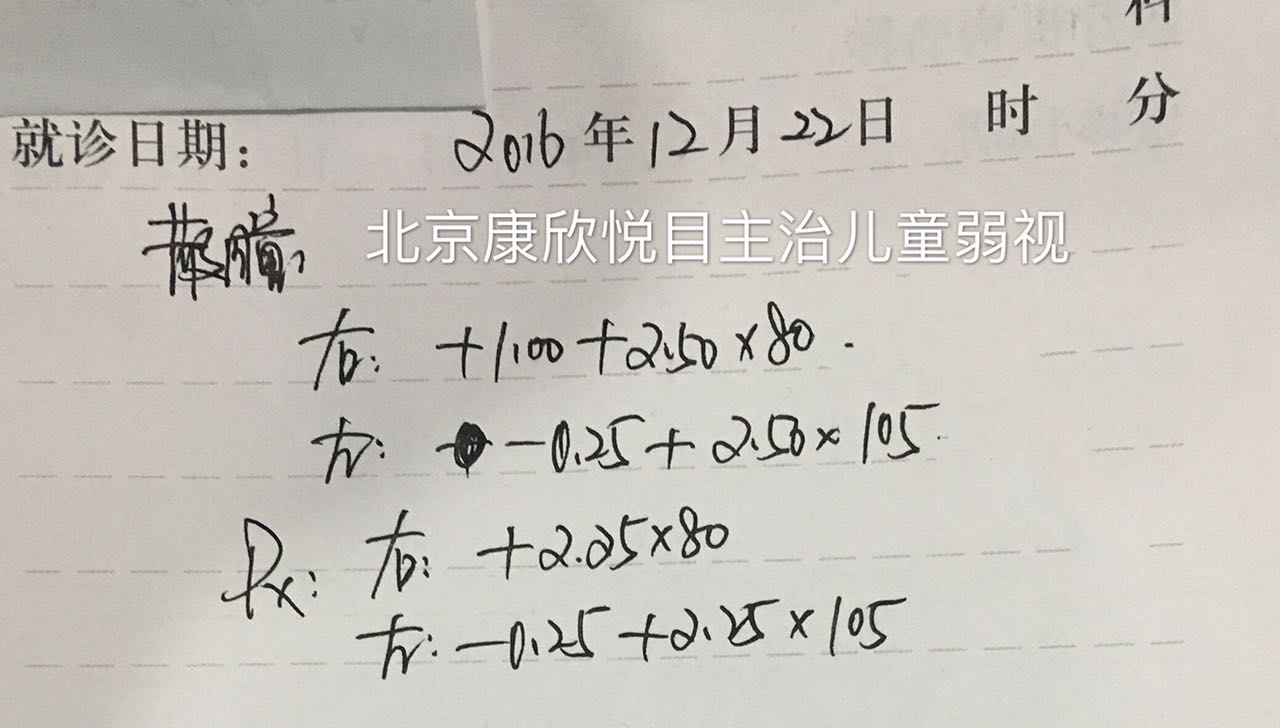 科
就诊日期： 2016年12月22日 时 分
散瞳：
北京康欣悦目主治儿童弱视
右： +1.00 +2.50×80.
左： -0.25 + 2.50×105.
Rx： 右： +2.25×80
左： -0.25 +2.25×105